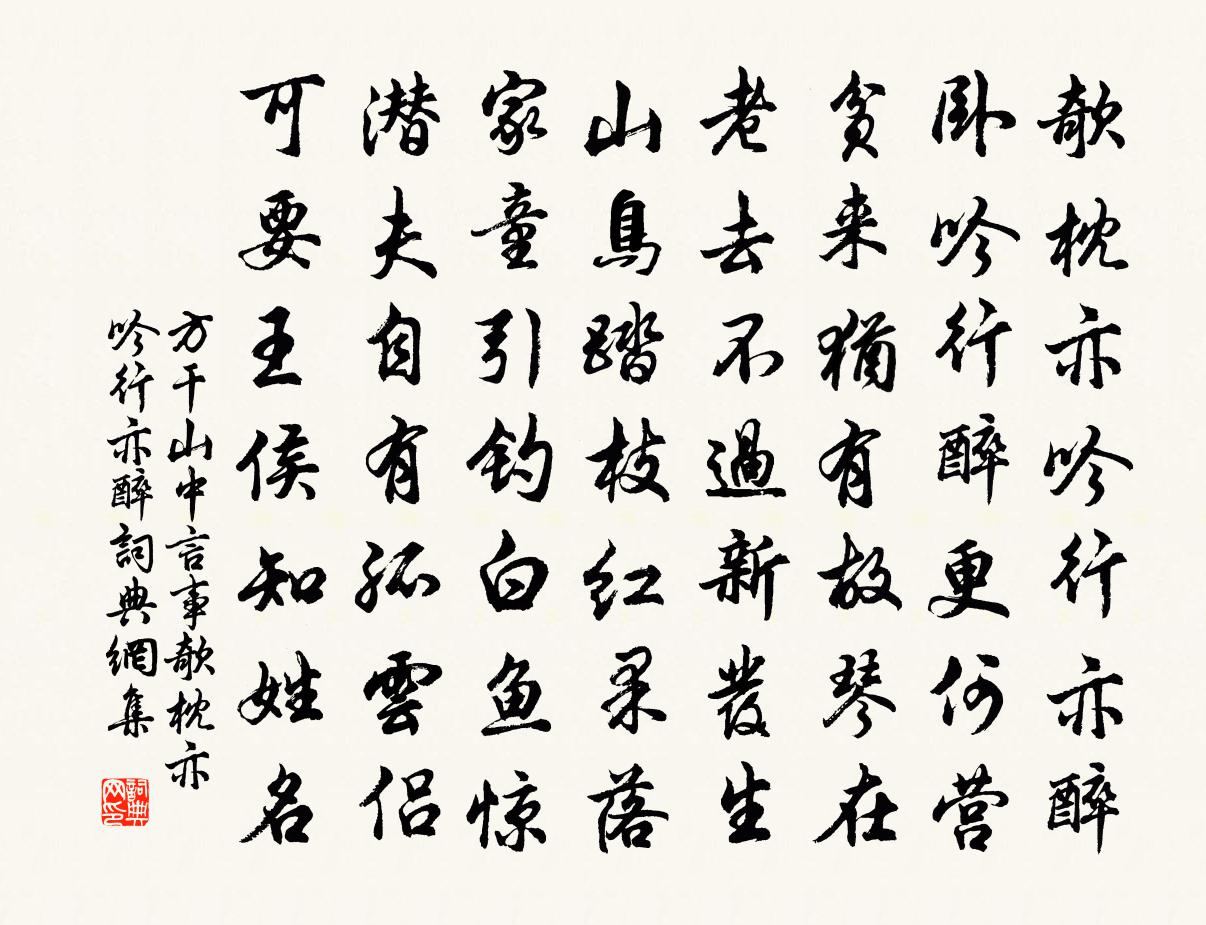 欹枕亦吟行亦醉
卧吟行醉更何营
贫来猶有故琴在
老去不過新發生
山鳥踏枝红果落
家童引钓白鱼惊
潜夫自有孤雲侣
可要王侯知姓名
方干山中言事欹枕亦
吟行亦醉詞典網集
詞典
网印